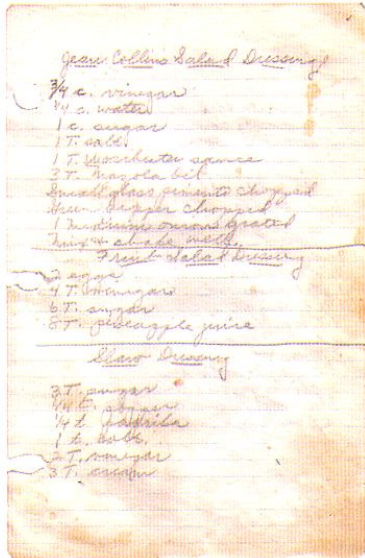 Jean Collins Salad Dressing
3/4 c. vinegar
1/4 c. water
1 c. sugar
1 T. salt
1 T. Worchester sauce
3 T. Mazola oil
Small glass pimento chopped
Green pepper chopped
1 medium onion grated
mix & shake well.
Fruit Salad Dressing
2 eggs
4 T. vinegar
6 T. sugar
8 T. pineapple juice
Slaw Dressing
3 T. sugar
1/4 t. pepper
1/4 t. paprika
1 t. salt
2 T. vinegar
3 T. cream